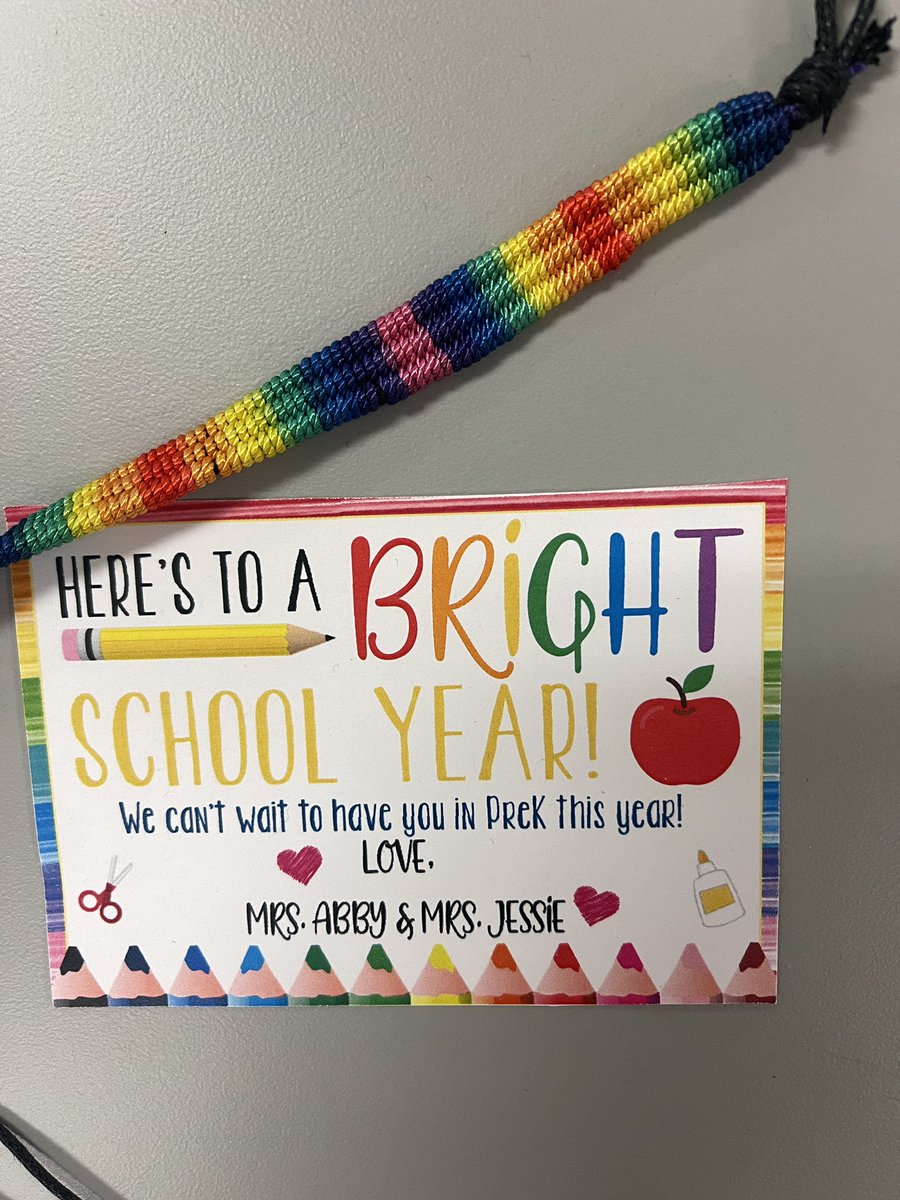 HERE'S TO A BRiGHT
SCHOOL YEAR!
We can't wait to have you in PreK this year!
LOVE,
MRS. ABBY & MRS. JESSiE